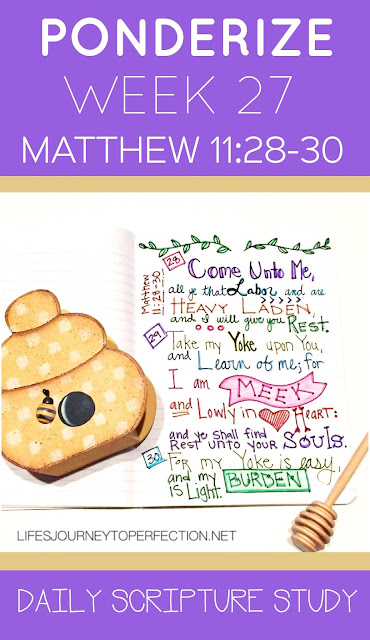 PONDERIZE
WEEK 27
MATTHEW 11:28-30
Matthew
11:28-30
28 Come Unto Me,
all ye that Labor and are
HEAVY LADEN,
and I will give you REST.
29 Take my Yoke upon You,
and Learn of me; for
I am MEEK
and Lowly in Heart:
and ye shall find
REST unto your Souls.
30 For my Yoke is easy,
and my BURDEN
is Light.
LIFESJOURNEYTOPERFECTION.NET
DAILY SCRIPTURE STUDY